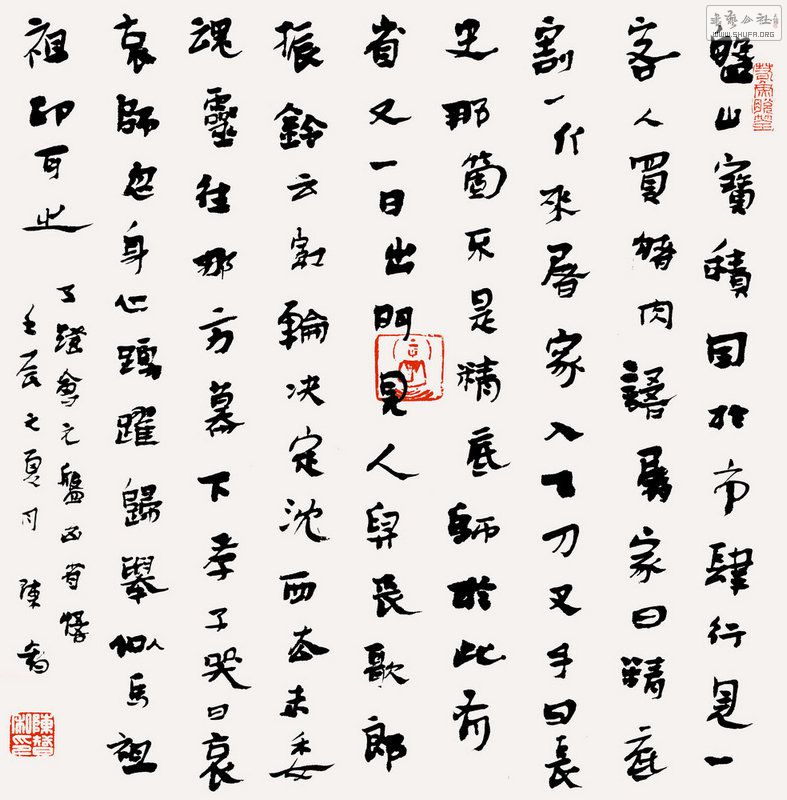 盤山寶積因於市肆行見一
客人買豬肉語屠家曰精底
割一斤來屠家入下刀叉手曰長
史那箇不是精底師於此有
省又一日出門見人舁喪歌郎
振鈴云紅輪决定沈西去未委
魂靈往那方幕下孝子哭曰哀
哀師忽身心踴躍歸舉似馬祖
祖印可之
五燈會元盤山省悟
壬辰之夏月 陳
書藝公社
WWW.SHUFA.ORG